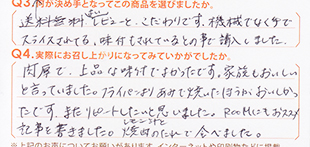 Q3.何が決め手となってこの商品を選びましたか。
送料無料、レビューと、こだわりです。機械でなく手で
スライスされてる、味付もされているとの事で購入しました。
Q4.実際にお召し上がりになってみていかがでしたか。
肉厚で、上品な味付でよかったです。家族もおいしい
と言っていました。フライパンよりあみで焼いたほうがおいしかっ
たです。またリピートしたいと思いました。ROOMにもおススメ
記事を書きました。焼肉のたれで食べました。
レモンじると